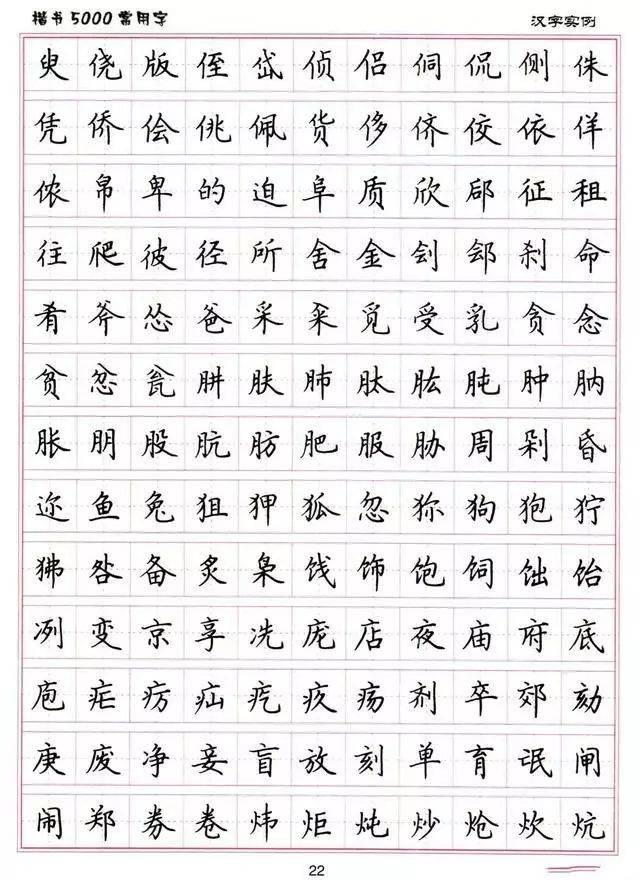 楷书5000常用字 汉字实例
臾侥版侄岱侦侣侗侃侧侏
凭侨侩佻佩货侈侪佼依佯
侬帛卑的迫阜质欣郈征租
往爬彼径所舍金刽郐刹命
肴斧怂爸采籴觅受乳贪念
贫忿瓮肼肤肺肽肱肫肿肭
胀朋股肮肪肥服胁周剁昏
迩鱼兔狙狎狐忽狝狗狍狞
狒咎备炙枭饯饰饱饲饳饴
冽变京享冼庞店夜庙府底
庖疟疠疝疙疚疡剂卒郊劾
庚废净妾盲放刻单育氓闸
闹郑券卷炜炬炖炒炝炊炕
22